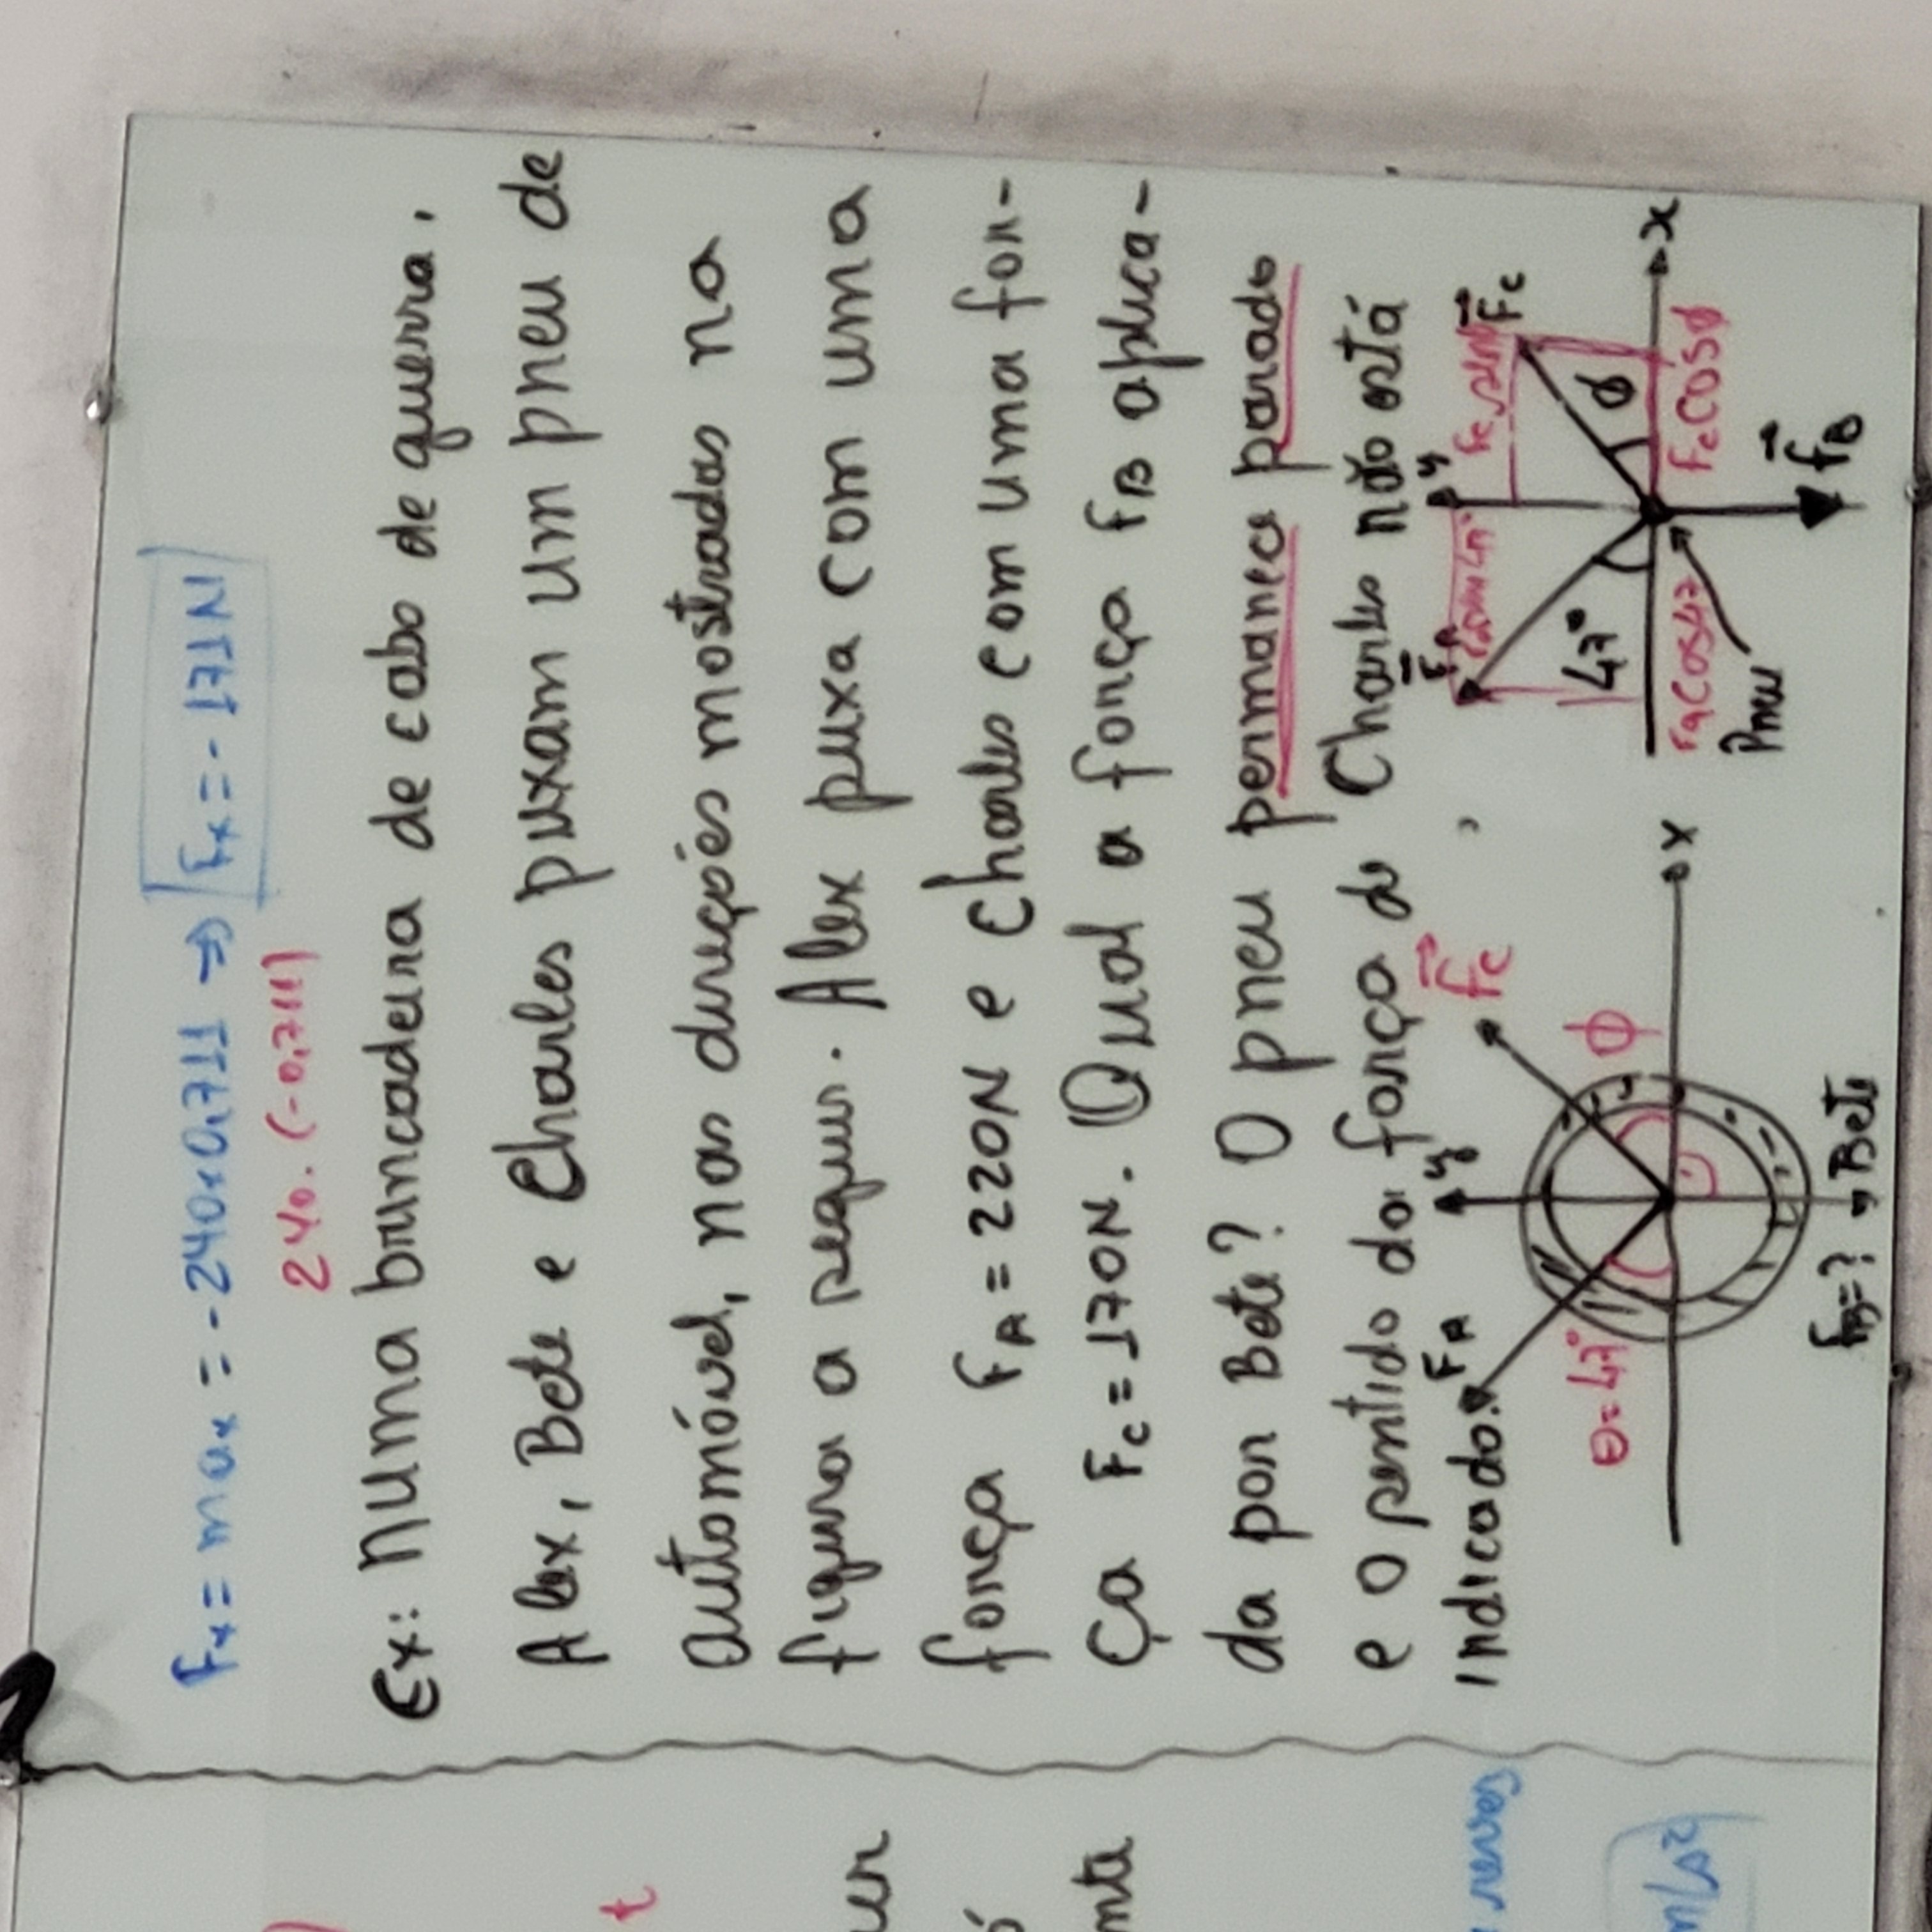 Fx = max = -240x0,711 => Fx = -171N
240. (-0,711)
Ex: Numa brincadeira de cabo de guerra,
Alex, Bete e Charles puxam um pneu de
automóvel, nas direções mostradas na
figura a seguir. Alex puxa com uma
força FA = 220N e Charles com uma for-
ça Fc = 170N. Qual a força FB aplica-
da por Bete? O pneu permanece parado
e o sentido da força de Charles não está
indicado.
FA
y
Fc
θ=47°
φ
x
FB=?
Bete
FA
y
Fc
47°
φ
x
FAcos47
Fccosφ
Pneu
FB
t
ur
nta
m/s²